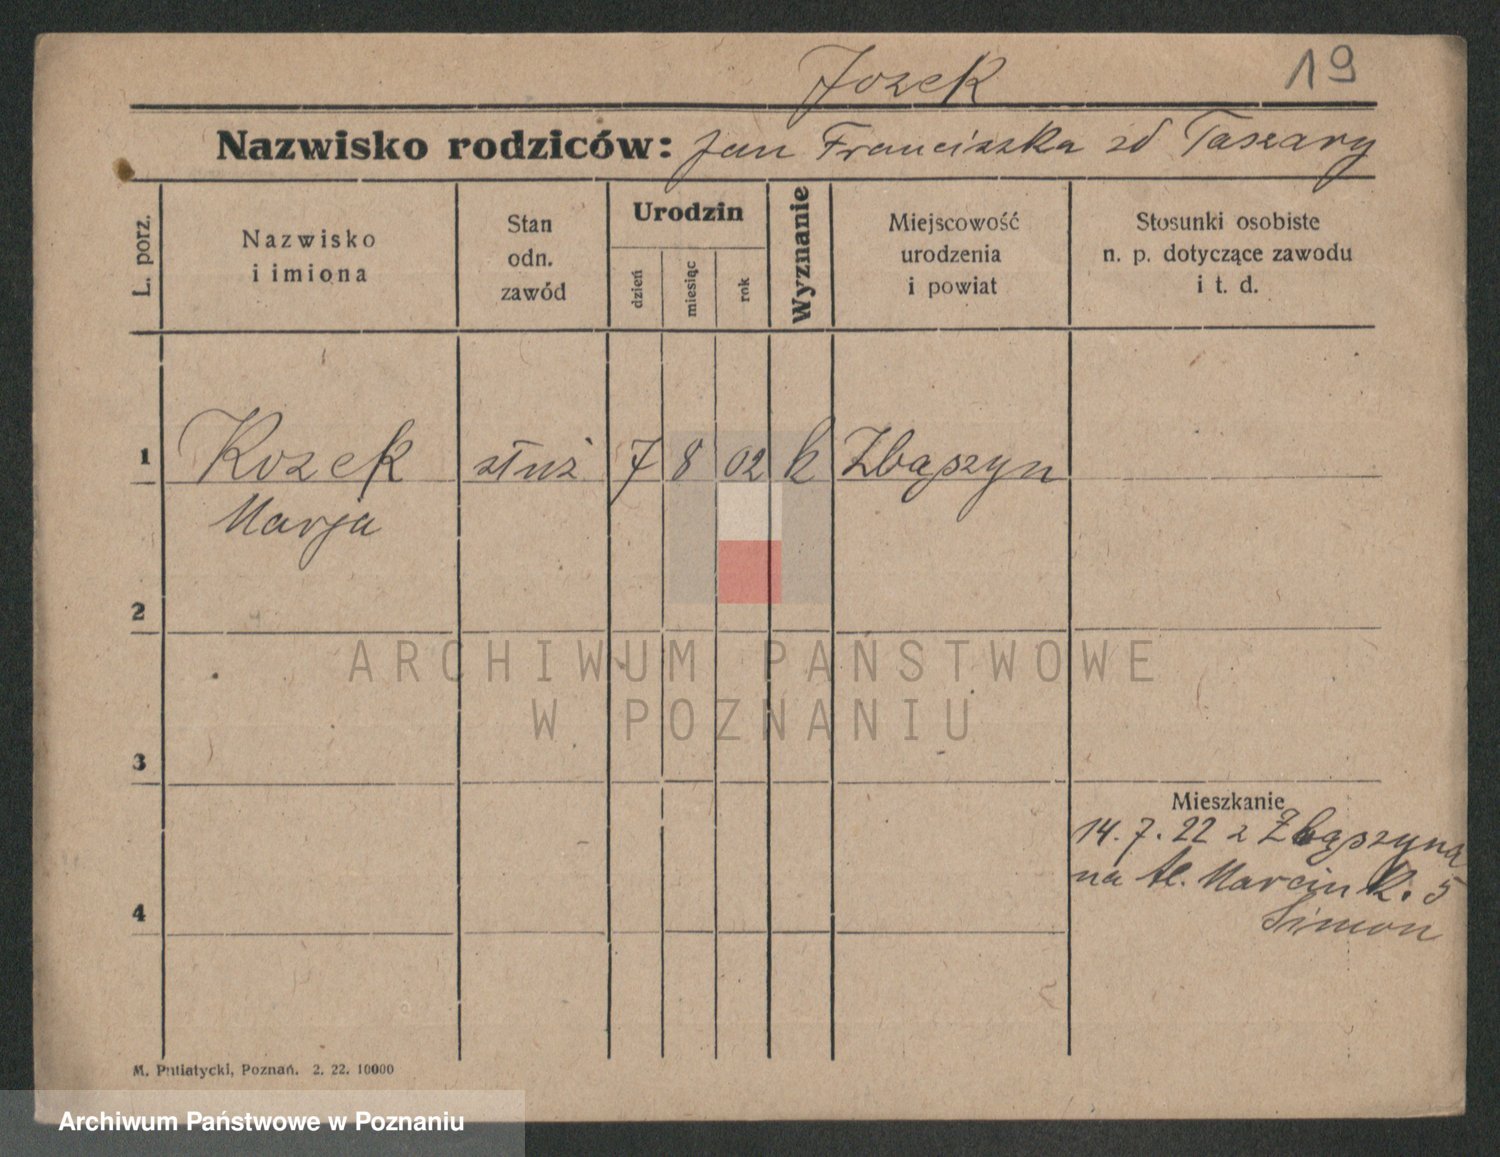 Jozek
19
Nazwisko rodziców: Jan Franciszka zd Taszary
L. porz.
Nazwisko
i imiona
Stan
odn.
zawód
Urodzin
dzień
miesiąc
rok
Wyznanie
Miejscowość
urodzenia
i powiat
Stosunki osobiste
n. p. dotyczące zawodu
i t. d.
1 Kozek służ 7 8 02 k Zbąszyn
Marja
2
ARCHIWUM PAŃSTWOWE
W POZNANIU
3
Mieszkanie
14. 7. 22 z Zbąszyna
na św. Marcin K. 5
Simon
4
M. Putiatycki, Poznań. 2. 22. 10000
Archiwum Państwowe w Poznaniu